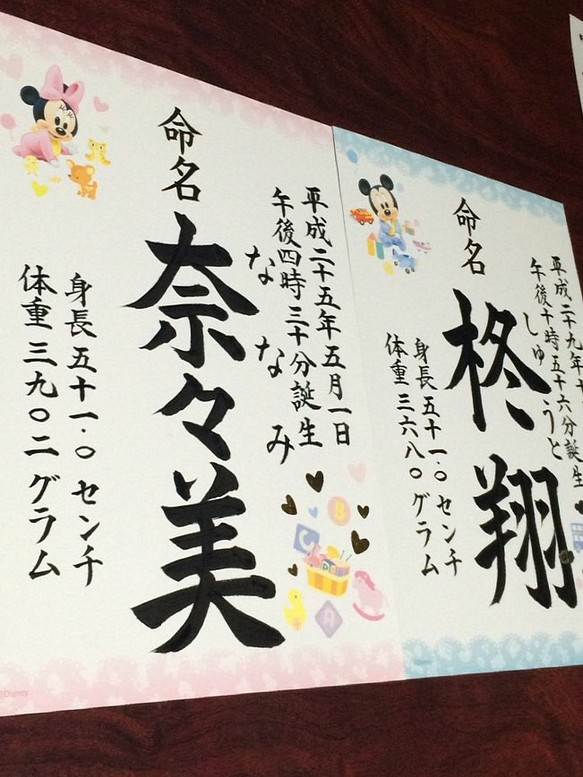 平成二十九年十
午後十時五十六分誕生
しゅうと
命名
柊翔
身長五十一・〇センチ
体重三六八〇グラム
平成二十五年五月一日
午後四時三十分誕生
ななみ
命名
奈々美
身長五十一・〇センチ
体重三九〇二グラム
©Disney